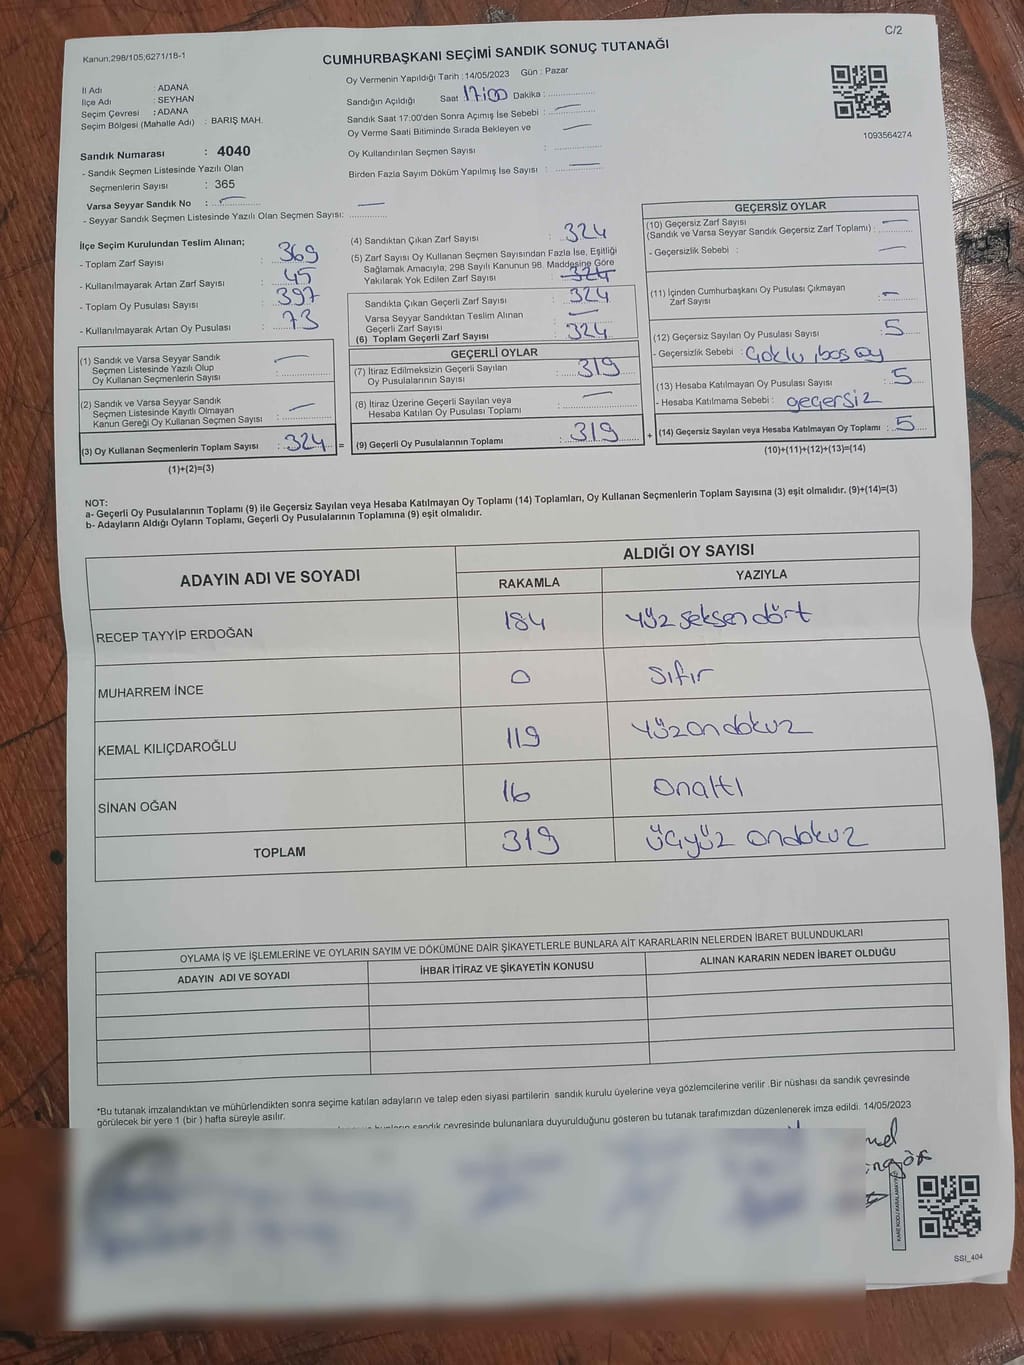 Kanun,298/105;6271/18-1
C/2
CUMHURBAŞKANI SEÇİMİ SANDIK SONUÇ TUTANAĞI
İl Adı : ADANA
İlçe Adı : SEYHAN
Seçim Çevresi : ADANA
Seçim Bölgesi (Mahalle Adı) : BARIŞ MAH.
Oy Vermenin Yapıldığı Tarih : 14/05/2023 Gün : Pazar
Sandığın Açıldığı Saat 17:00 Dakika :
Sandık Saat 17:00'den Sonra Açımış İse Sebebi :
Oy Verme Saati Bitiminde Sırada Bekleyen ve
Oy Kullandırılan Seçmen Sayısı :
Birden Fazla Sayım Döküm Yapılmış İse Sayısı :
1093564274
Sandık Numarası : 4040
- Sandık Seçmen Listesinde Yazılı Olan
Seçmenlerin Sayısı : 365
Varsa Seyyar Sandık No :
- Seyyar Sandık Seçmen Listesinde Yazılı Olan Seçmen Sayısı:
İlçe Seçim Kurulundan Teslim Alınan;
- Toplam Zarf Sayısı : 369
- Kullanılmayarak Artan Zarf Sayısı : 45
- Toplam Oy Pusulası Sayısı : 397
- Kullanılmayarak Artan Oy Pusulası : 73
(1) Sandık ve Varsa Seyyar Sandık
Seçmen Listesinde Yazılı Olup
Oy Kullanan Seçmenlerin Sayısı :
(2) Sandık ve Varsa Seyyar Sandık
Seçmen Listesinde Kayıtlı Olmayan
Kanun Gereği Oy Kullanan Seçmen Sayısı :
(3) Oy Kullanan Seçmenlerin Toplam Sayısı : 324 =
(1)+(2)=(3)
(4) Sandıktan Çıkan Zarf Sayısı : 324
(5) Zarf Sayısı Oy Kullanan Seçmen Sayısından Fazla İse, Eşitliği
Sağlamak Amacıyla; 298 Sayılı Kanunun 98. Maddesine Göre
Yakılarak Yok Edilen Zarf Sayısı : 324
Sandıkta Çıkan Geçerli Zarf Sayısı : 324
Varsa Seyyar Sandıktan Teslim Alınan
Geçerli Zarf Sayısı :
(6) Toplam Geçerli Zarf Sayısı : 324
GEÇERLİ OYLAR
(7) İtiraz Edilmeksizin Geçerli Sayılan
Oy Pusulalarının Sayısı : 319
(8) İtiraz Üzerine Geçerli Sayılan veya
Hesaba Katılan Oy Pusulası Toplamı :
(9) Geçerli Oy Pusulalarının Toplamı : 319 +
GEÇERSİZ OYLAR
(10) Geçersiz Zarf Sayısı
(Sandık ve Varsa Seyyar Sandık Geçersiz Zarf Toplamı) :
- Geçersizlik Sebebi :
(11) İçinden Cumhurbaşkanı Oy Pusulası Çıkmayan
Zarf Sayısı :
(12) Geçersiz Sayılan Oy Pusulası Sayısı : 5
- Geçersizlik Sebebi : Çoklu, boş oy
(13) Hesaba Katılmayan Oy Pusulası Sayısı : 5
- Hesaba Katılmama Sebebi : geçersiz
(14) Geçersiz Sayılan veya Hesaba Katılmayan Oy Toplamı : 5
(10)+(11)+(12)+(13)=(14)
NOT:
a- Geçerli Oy Pusulalarının Toplamı (9) ile Geçersiz Sayılan veya Hesaba Katılmayan Oy Toplamı (14) Toplamları, Oy Kullanan Seçmenlerin Toplam Sayısına (3) eşit olmalıdır. (9)+(14)=(3)
b- Adayların Aldığı Oyların Toplamı, Geçerli Oy Pusulalarının Toplamına (9) eşit olmalıdır.
ADAYIN ADI VE SOYADI
ALDIĞI OY SAYISI
RAKAMLA YAZIYLA
RECEP TAYYİP ERDOĞAN 184 Yüz seksen dört
MUHARREM İNCE 0 Sıfır
KEMAL KILIÇDAROĞLU 119 Yüzondokuz
SİNAN OĞAN 16 Onaltı
TOPLAM 319 Üçyüz ondokuz
OYLAMA İŞ VE İŞLEMLERİNE VE OYLARIN SAYIM VE DÖKÜMÜNE DAİR ŞİKAYETLERLE BUNLARA AİT KARARLARIN NELERDEN İBARET BULUNDUKLARI
ADAYIN ADI VE SOYADI İHBAR İTİRAZ VE ŞİKAYETİN KONUSU ALINAN KARARIN NEDEN İBARET OLDUĞU
*Bu tutanak imzalandıktan ve mühürlendikten sonra seçime katılan adayların ve talep eden siyasi partilerin sandık kurulu üyelerine veya gözlemcilerine verilir .Bir nüshası da sandık çevresinde
görülecek bir yere 1 (bir ) hafta süreyle asılır.
sandık çevresinde bulunanlara duyurulduğunu gösteren bu tutanak tarafımızdan düzenlenerek imza edildi. 14/05/2023
SSI_404